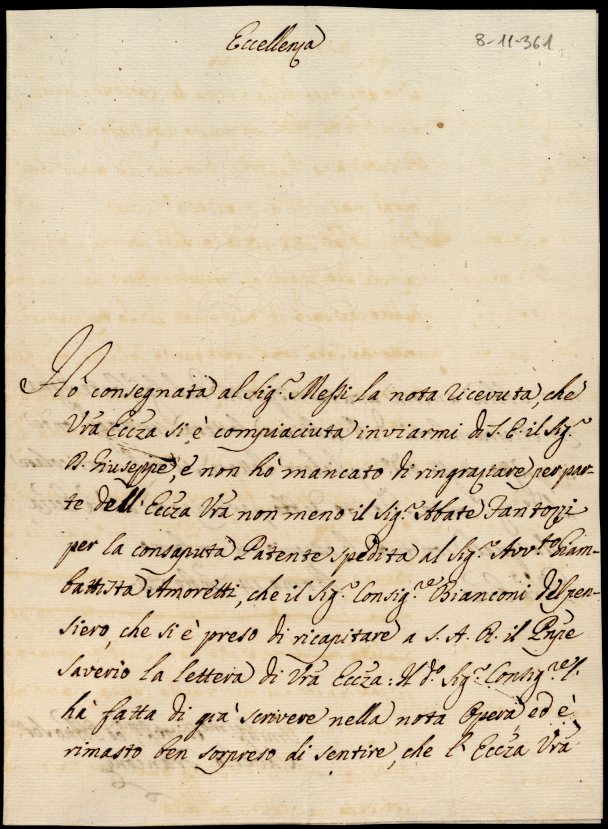 Eccellenza
8-11-361
Hò consegnata al Sig.r Messi la nota ricevuta, che
Vrã Eccza si è compiaciuta inviarmi di S. E. il Sig.r
D. Giuseppe, e non hò mancato di ringraziare per par-
te dell'Eccza Vrã non meno il Sig.r Abate Fantoni
per la consaputa Patente spedita al Sig.r Avv.to Giam-
battista Amoretti, che il Sig.r Consig.re Bianconi del pen-
siero, che si è preso di ricapitare a S. A. R. il Pnpe
Saverio la lettera di Vrã Eccza: Il d.o Sig.r Consig.re l'
hà fatta di già scrivere nella nota Opera ed è
rimasto ben sorpreso di sentire, che l'Eccza Vrã